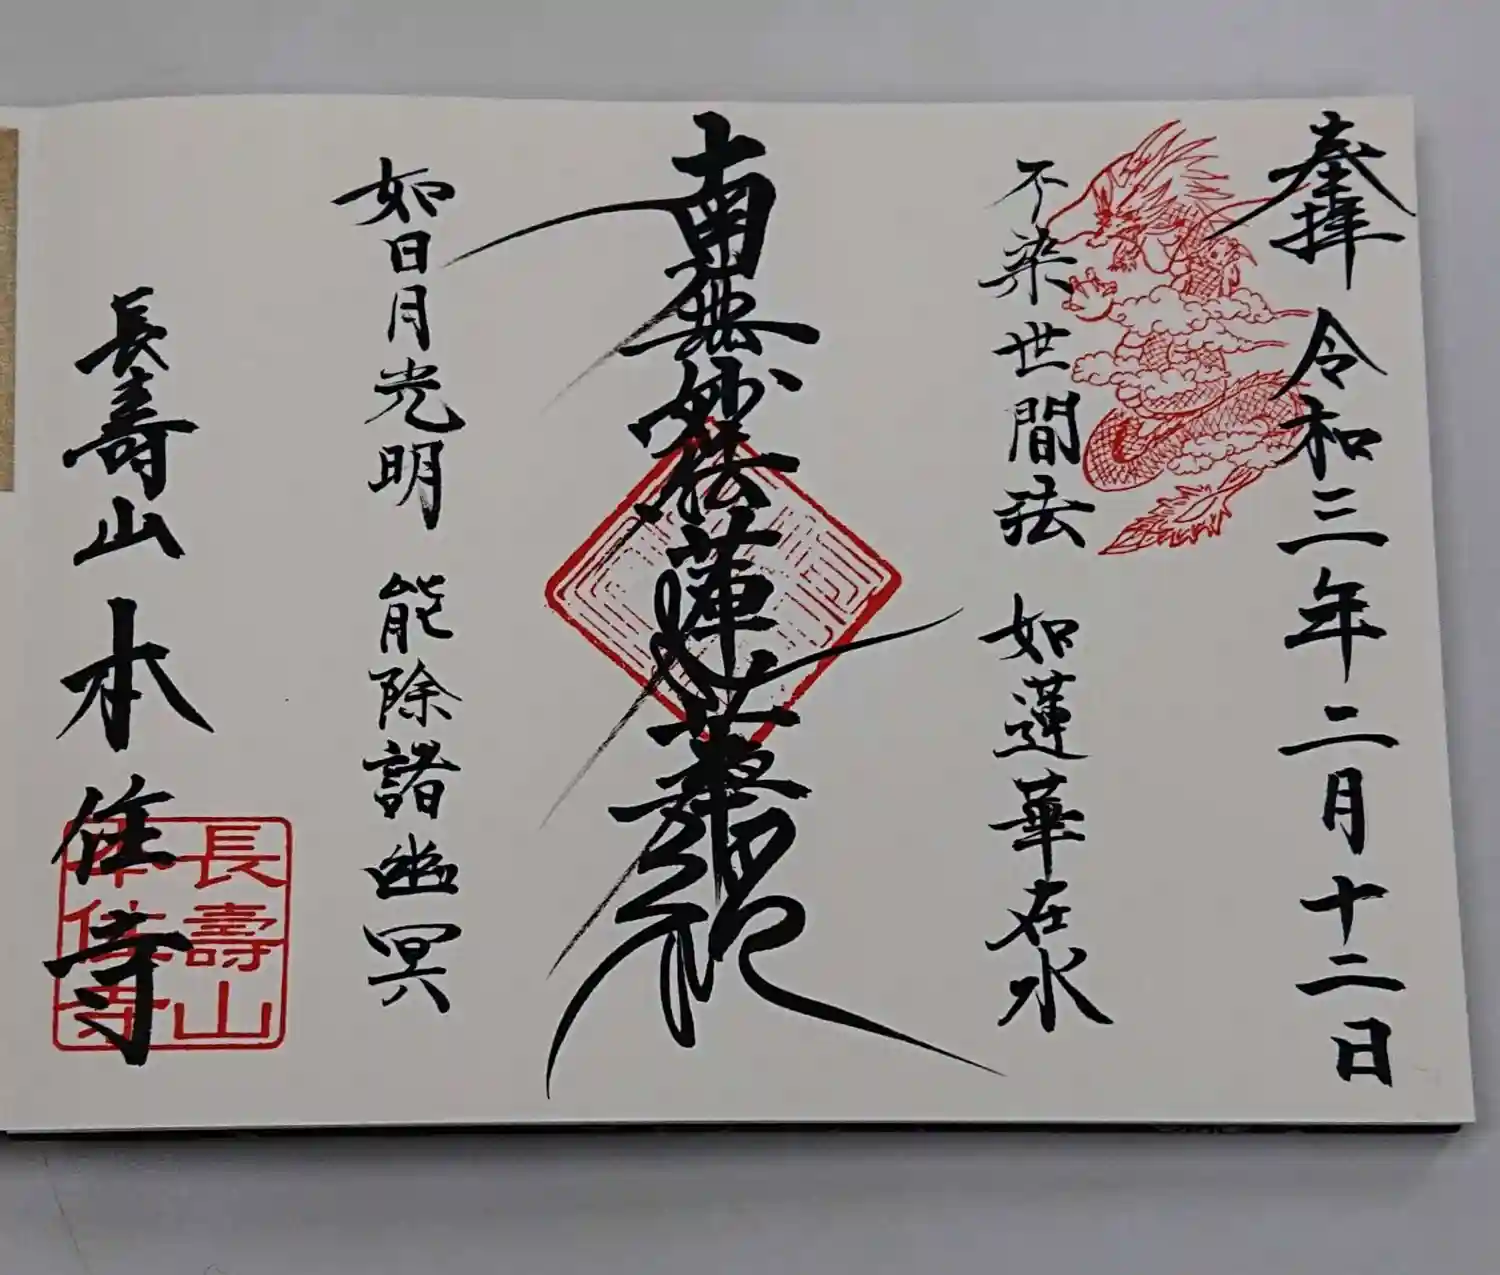 奉拝 令和三年二月十二日
不染世間法 如蓮華在水
南無妙法蓮華経
如日月光明 能除諸幽冥
長壽山 本住寺
長壽山
本住寺